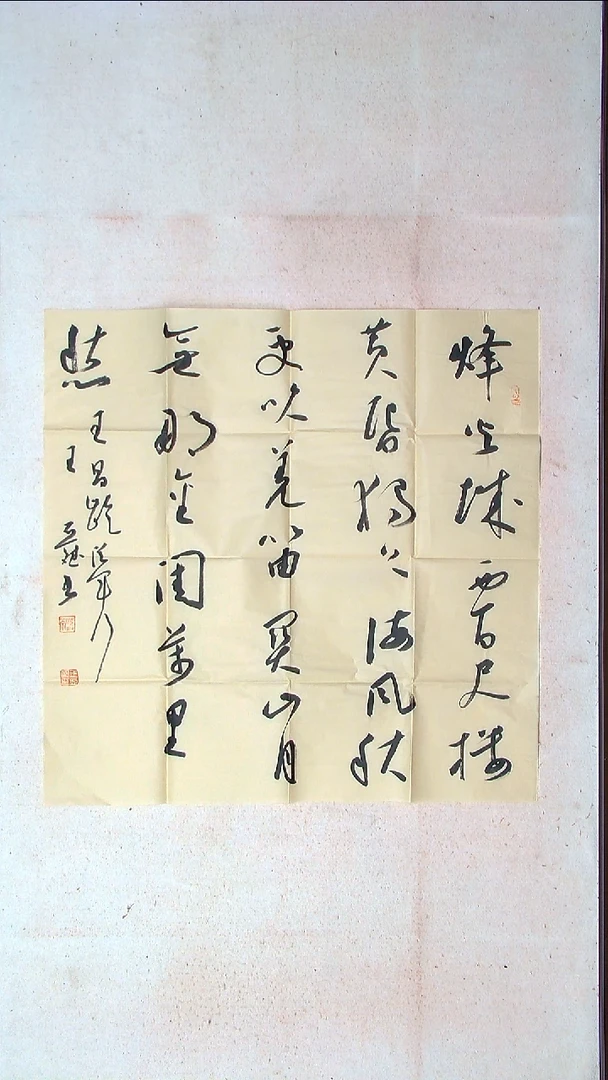 烽火城西百尺楼
黄昏独上海风秋
更吹羌笛关山月
无那金闺万里
愁 王昌龄从军行
王